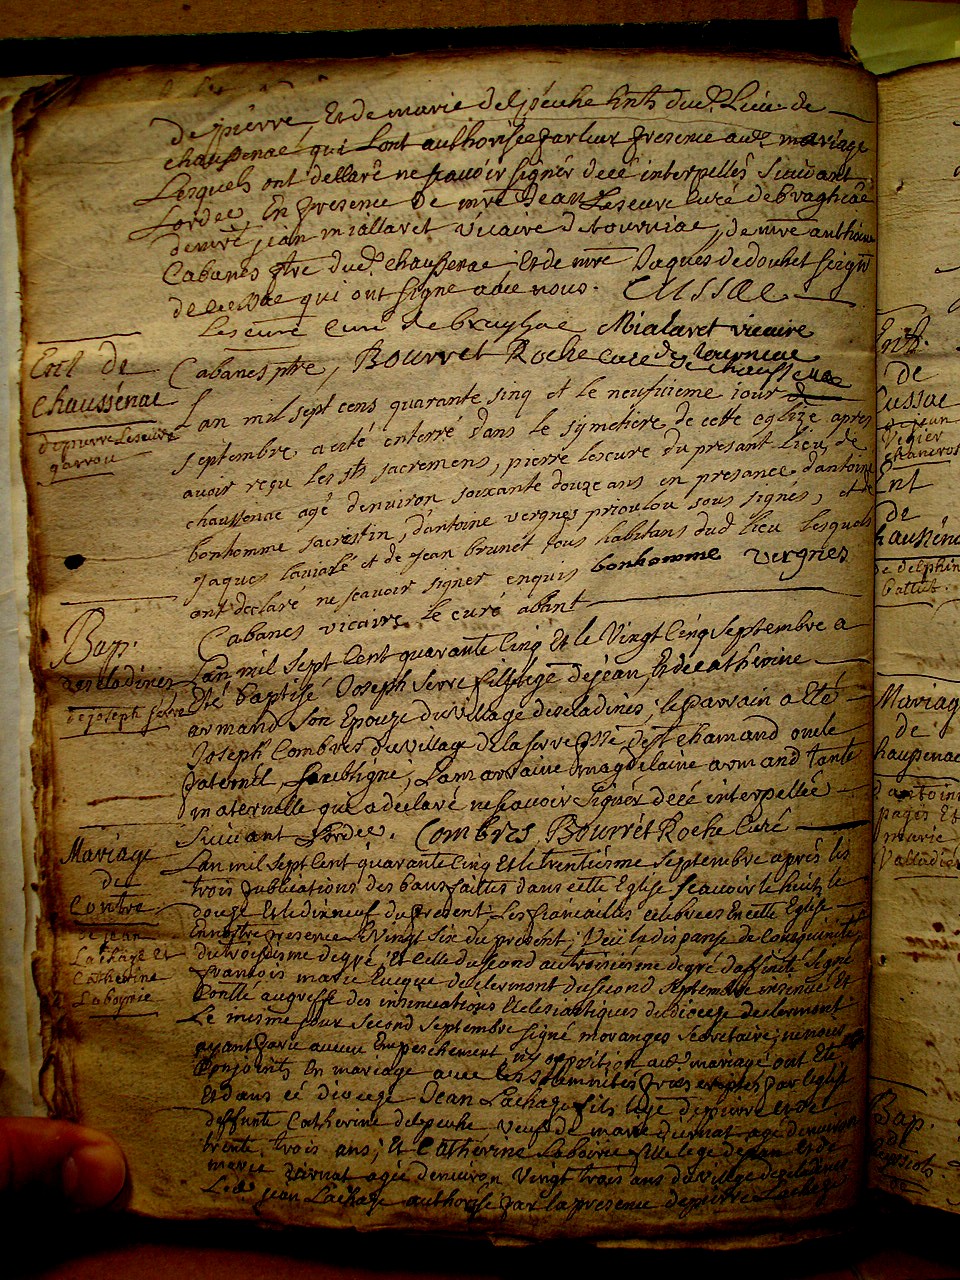 de pierre, Et de marie deljouhe hnts dud. Lieu de
chaussenac qui Lont authorisée par leur presence aud. mariage
Lesquels ont dellaré ne scavoir signér de cé interpellés suivant
Lordce, En presence de mre Jean Leseure curé de Bragheac
de mre jean miallaret vicaire de tourniac, de mre anthoine
Cabanes ptre dud. chaussenac Et de mre Jaques de douhet seigr
de cussac qui ont signé avec nous. Cussac
Leseure curé de brughac Mialaret vicaire
Cabanes ptre, Bourret Roche curé de chaussenac
de Tourniac
Ent de
Chaussénac
de pierre Leseure
garrou
Lan mil sept cens quarante sinq et le neufuieme jour de
septembre a eté enterré dans le symetiere de cette eglize apres
avoir reçu les sts sacremens, pierre lescure du presant lieu de
chaussenac agé denviron soixante douze ans en presance dantoine
bonhomme sacrestin, d'antoine vergnes prioulou sous signés, et de
Jaques laviale et de Jean brunet tous habitans dud lieu lesquels
ont declaré ne scavoir signer enquis bonhomme vergnes
Cabanes vicaire le curé absent
Bap.
deseladines
de joseph serre
Lan mil sept Cent quarante Cinq Et le Vingt Cinq Septembre a
Eté baptisé Joseph Serre fils lege de jean, Et de catherine
armand son Epouze du Village deseladines, le parrain a Eté
Joseph Combres du Village de La serre psse dest chamand oncle
paternel, soubsigné; La marraine magdelaine armand tante
maternelle qui a declaré ne scavoir signér de cé interpellée
suivant Lordce. Combres Bourrét Roche Curé
Mariage
de
Contre
de jean
Lachaze Et
Catherine
Laboyrie
Lan mil sept Cent quarante Cinq Et le trentiésme septembre aprés les
trois publications des bans faittes dans cette Eglise scavoir le huit, le
douze Et le dixneuf du present; Les fiancailles celebrées En cette Eglise
En nostre presence Le Vingt six du present; Veü la dispanse de Consguinité
du troisiésme degré, Et Celle du second au troisiésme degré daffinité signé
francois marie Eveque de clermont du second septembre insinué Et
Contlé au greffe des insinuations Ecclesiastiques du diocèze de clermont
Le mesme jour second septembre signé moranges secretaire; ne nous
ayant paru aucun Empeschement, ny opposition aud. mariage ont Eté
Conjoints En mariage avec les solemnités prescriptes par leglise
Et dans cé diocèze Jean Lachaze fils lege de pierre Et de
deffunte Catherine delpeuhe veuf de marie diernat agé denviron
trente trois ans; Et Catherine Laboirie fille lege de jean Et de
marie diernat agée denviron Vingt trois ans du village
Led. jean Lachaze authorisé par la presence de pierre Lachaze
Enb.
de
Cussac
Ent
de
haussénac
de delphine
Mariage
de
haussenac
d'antoine
pages Et
marie
Valladier
Bap.
de